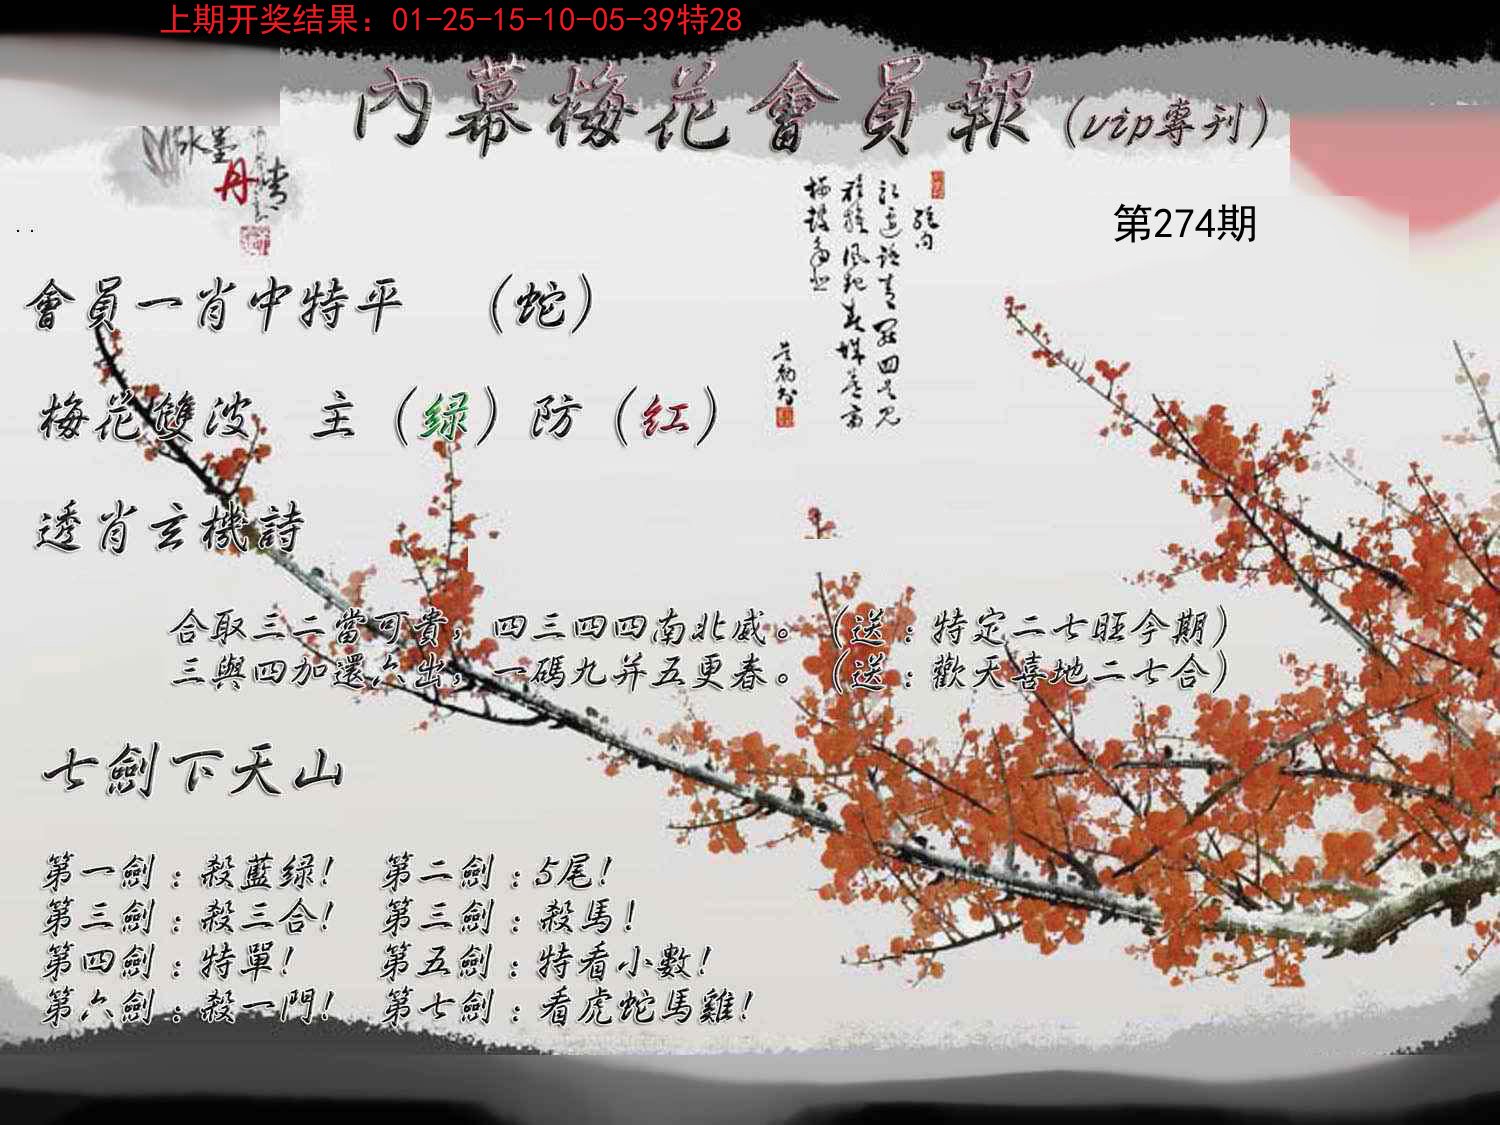 上期开奖结果：01-25-15-10-05-39特28
內幕梅花會員報（vip專刊）
水墨
丹
第274期
會員一肖中特平　（蛇）
梅花雙波　主（绿）防（红）
透肖玄機詩
合取三二當可貴，四三四四南北威。（送：特定二七旺今期）
三與四加還六出，一碼九并五更春。（送：歡天喜地二七合）
七劍下天山
第一劍：殺藍绿!　第二劍：5尾!
第三劍：殺三合!　第三劍：殺馬!
第四劍：特單!　第五劍：特看小數!
第六劍：殺一門!　第七劍：看虎蛇馬雞!